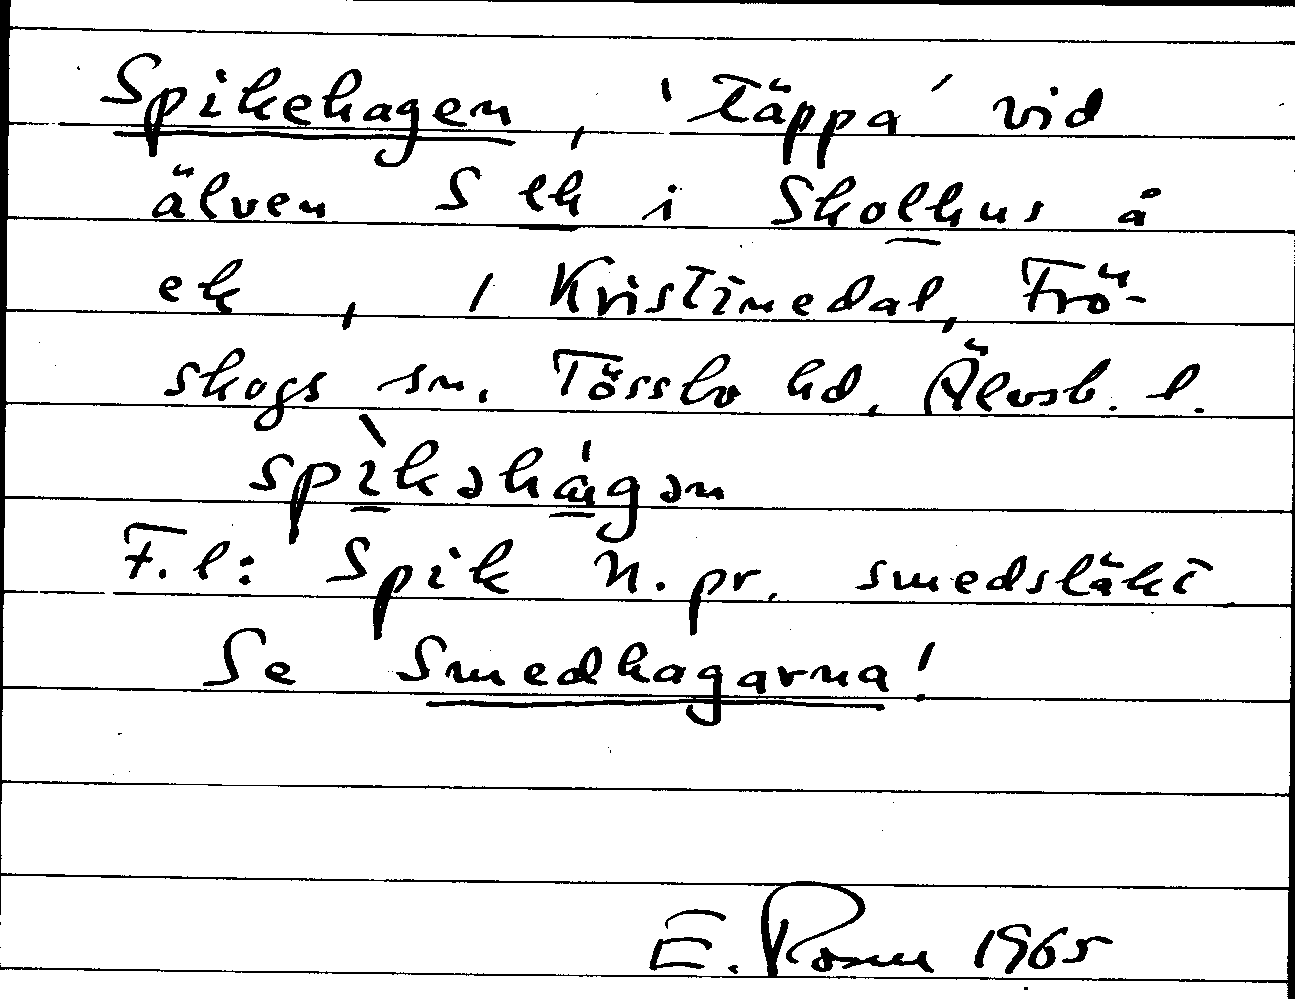 Spikehagen, 'täppa' vid
älven S ek i Skolhus å
ek , / Kristinedal, Frö-
skogs sn. Tössbo hd, Älvsb. l.
spìkəhágən
F. l: Spik N. pr. smedsläkt
Se Smedhagarna!
E. Rosen 1965